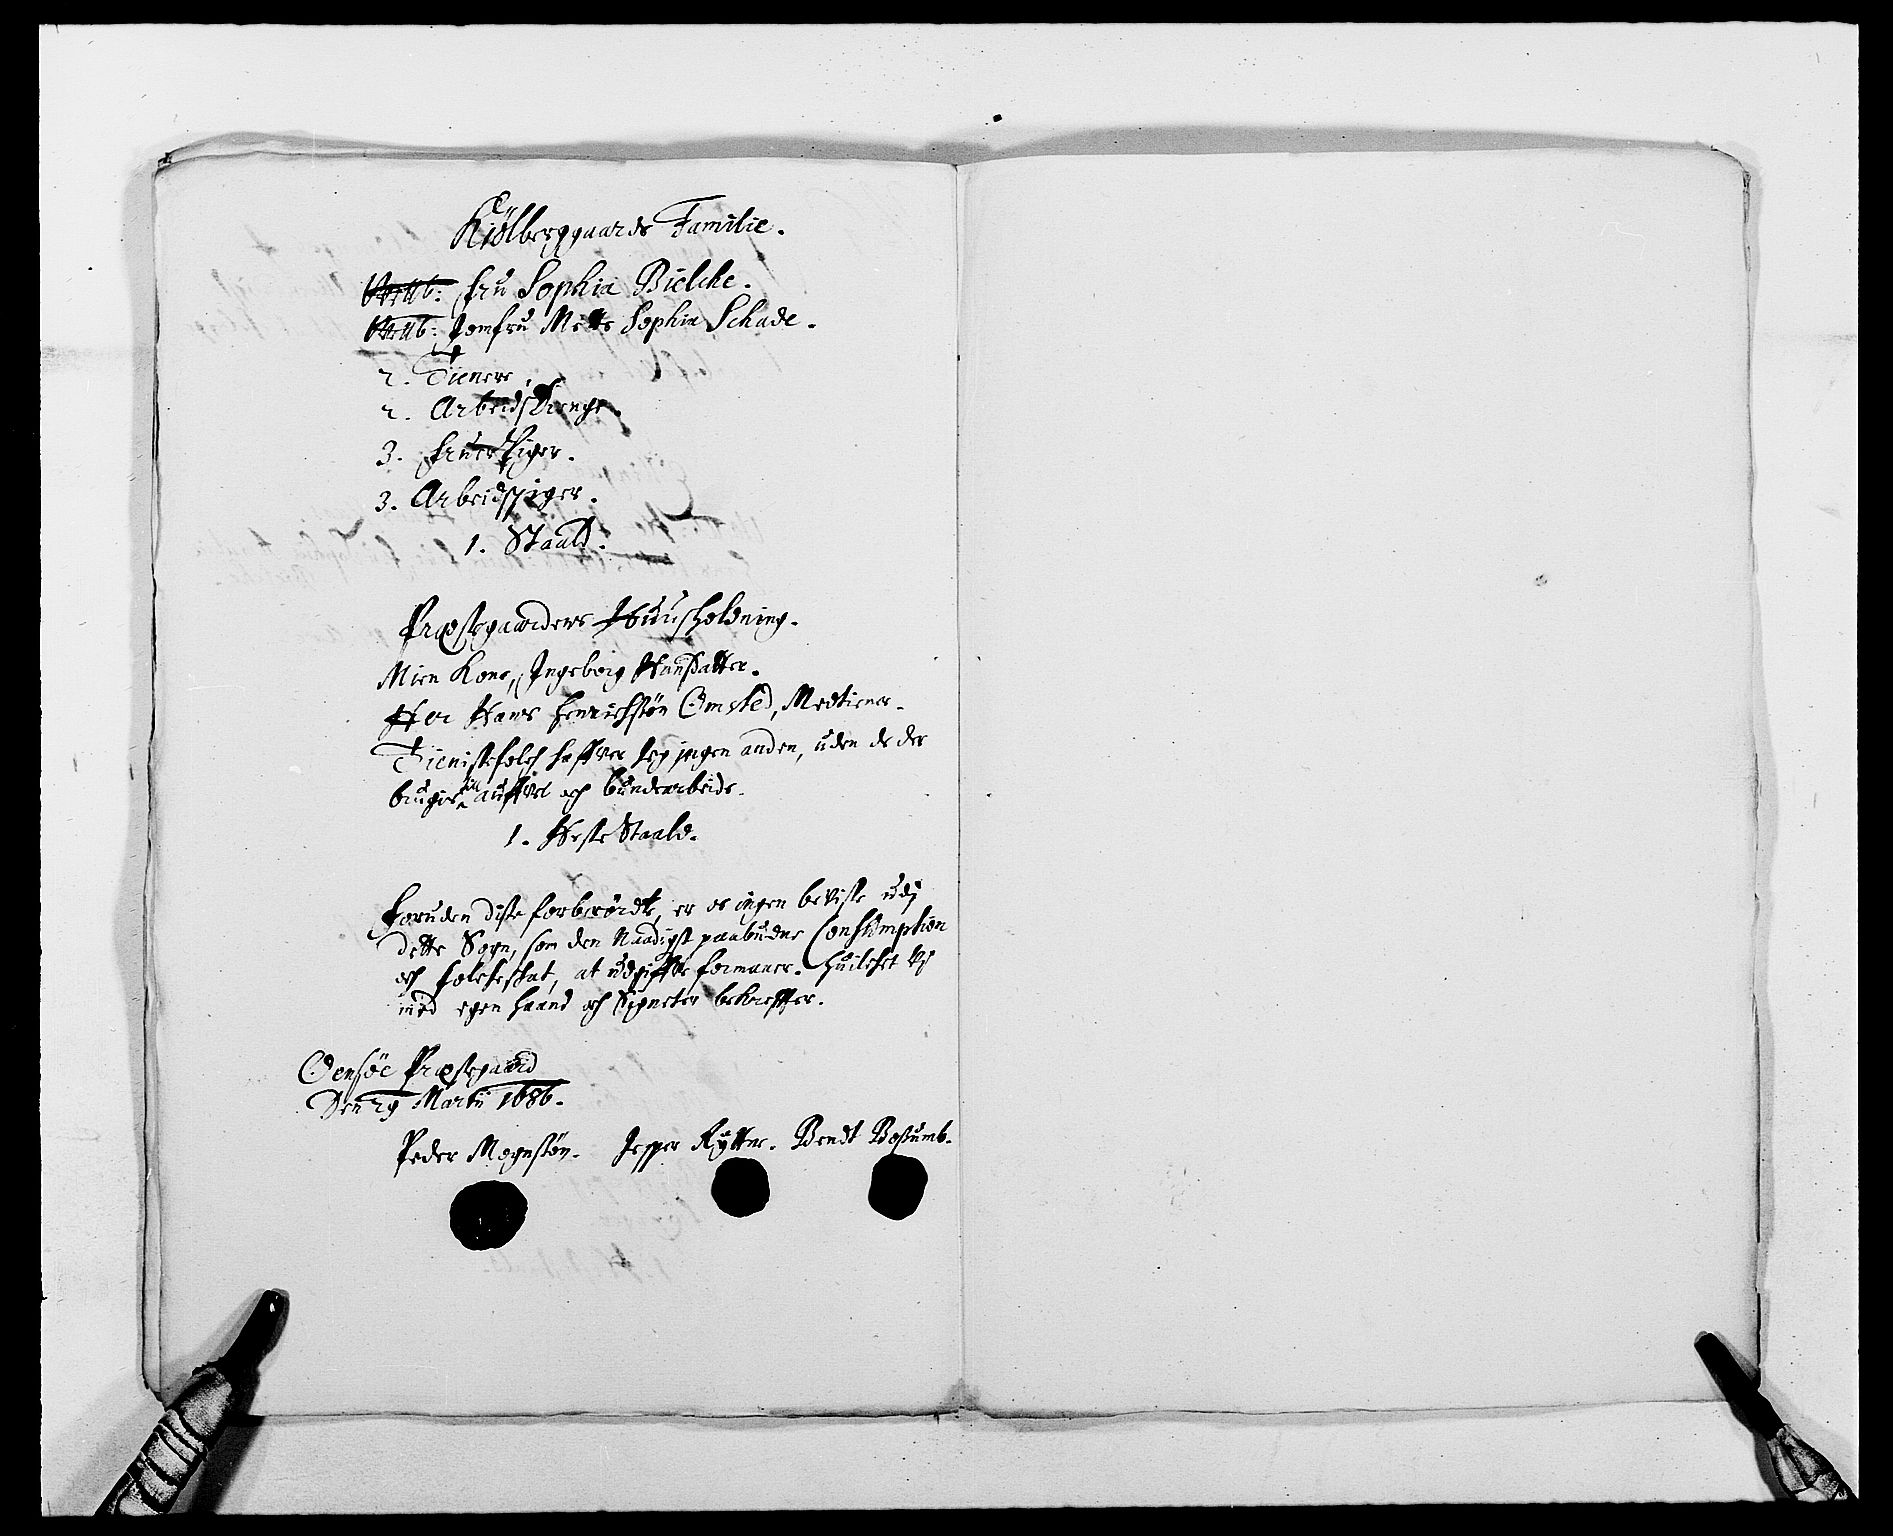 Kiölberggaards Familie.
Velb: Fru Sophia Bielche.
Velb: Jomfru Mette Sophia Schade.
2. Tienere.
2. Arbeids Drenge.
3. Fruers Piger.
3. Arbeidspiger.
1. Staald.
Præstegaardens Huusholdning.
Min Kone, Ingeborg Hansdatter.
Her Hans Henrichsøn Omsted, Medtiener.
Tienistefolch haffver Jeg ingen anden, uden de der
bruges til auffvel och bundearbeide.
1. Heste Staald.
Foruden diste forberørdte, er os ingen beviste udj
dette Sogn, som den Naadigst paabudne Consumption
och folcheskat, at udgiffve formaaer. Huilchet Vj
med egen haand och Signeter bekreffter.
Oensøe Præstegaard
Den 29 Martij 1686.
Peder Mognsøn. Jesper Rytter. Bendt Boßumb.